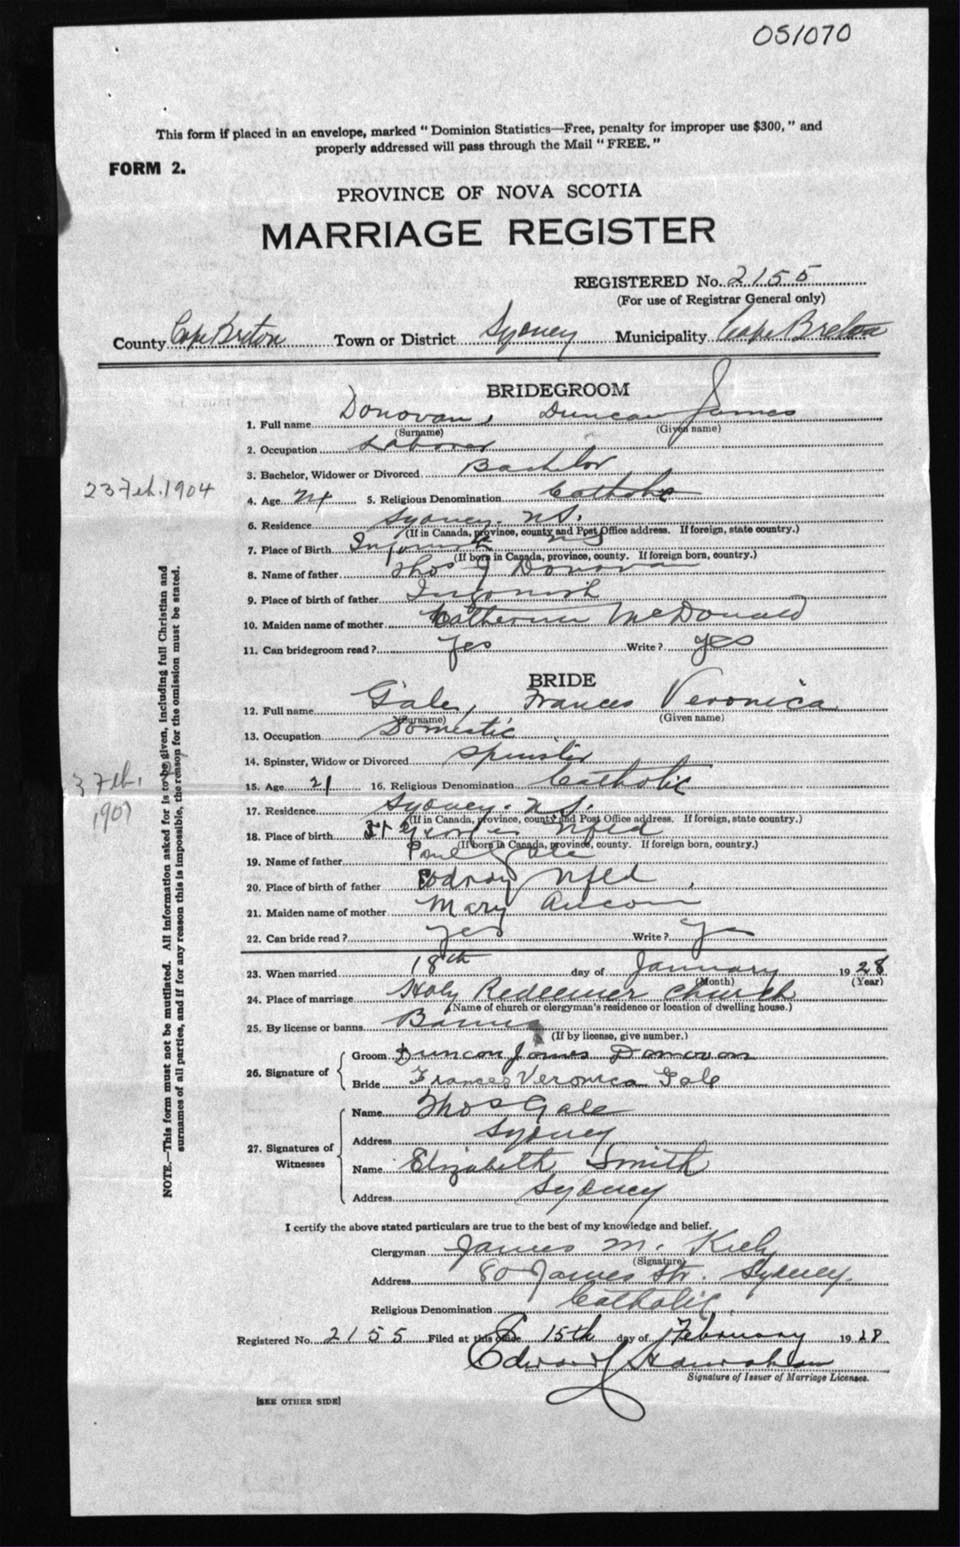 051070
This form if placed in an envelope, marked "Dominion Statistics—Free, penalty for improper use $300," and
properly addressed will pass through the Mail "FREE."
FORM 2.
PROVINCE OF NOVA SCOTIA
MARRIAGE REGISTER
REGISTERED No. 2155
(For use of Registrar General only)
County Cape Breton Town or District Sydney Municipality Cape Breton
BRIDEGROOM
1. Full name Donovan, Duncan James
(Surname) (Given name)
2. Occupation Laborer
3. Bachelor, Widower or Divorced Bachelor
23 Feb. 1904
4. Age 24 5. Religious Denomination Catholic
6. Residence Sydney. N.S.
(If in Canada, province, county and Post Office address. If foreign, state country.)
7. Place of Birth Ingonish N.S.
(If born in Canada, province, county. If foreign born, country.)
8. Name of father Thos J Donovan
9. Place of birth of father Ingonish
10. Maiden name of mother Catherine McDonald
11. Can bridegroom read? Yes Write? yes
BRIDE
12. Full name Gale, Frances Veronica
(Surname) (Given name)
13. Occupation Domestic
14. Spinster, Widow or Divorced Spinster
3 Feb. 1907
15. Age 21 16. Religious Denomination Catholic
17. Residence Sydney. N.S.
(If in Canada, province, county and Post Office address. If foreign, state country.)
18. Place of birth St Georges Nfld
(If born in Canada, province, county. If foreign born, country.)
19. Name of father Paul Gale
20. Place of birth of father Codroy Nfld
21. Maiden name of mother Mary Aucoin
22. Can bride read? Yes Write? Yes
23. When married 18th day of January 1928
(Month) (Year)
24. Place of marriage Holy Redeemer Church
(Name of church or clergyman's residence or location of dwelling house.)
25. By license or banns Banns
(If by license, give number.)
26. Signature of
Groom Duncan James Donovan
Bride Frances Veronica Gale
27. Signatures of Witnesses
Name Thos Gale
Address Sydney
Name Elizabeth Smith
Address Sydney
I certify the above stated particulars are true to the best of my knowledge and belief.
Clergyman James M. Kiely
(Signature)
Address 80 James Str. Sydney.
Religious Denomination Catholic.
Registered No. 2155 Filed at this office 15th day of February 1928
Edward Hanrahan
Signature of Issuer of Marriage Licenses.
[SEE OTHER SIDE]
NOTE.—This form must not be mutilated. All information asked for is to be given, including full Christian and
surnames of all parties, and if for any reason this is impossible, the reason for the omission must be stated.